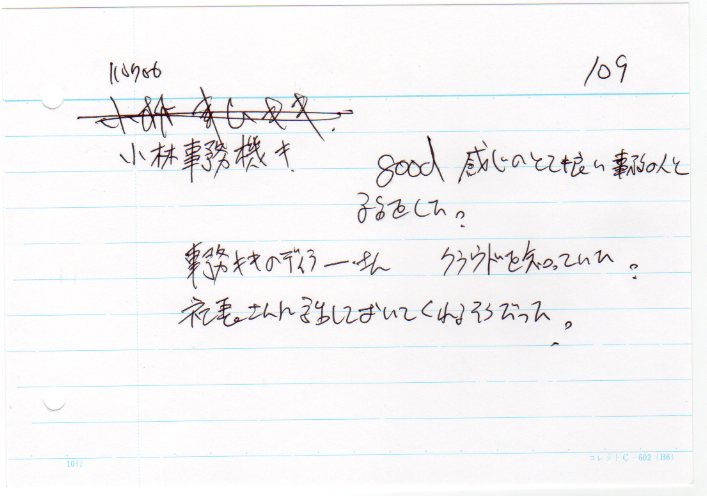 110706
109
小林事務機キ
good 感じのとても良い事務の人と
話をした。
事務キキのディラーさん クラウドを知っていた。
社長さんに話しておいてくれるそうだった。
1012
コレクト C-602 (B6)